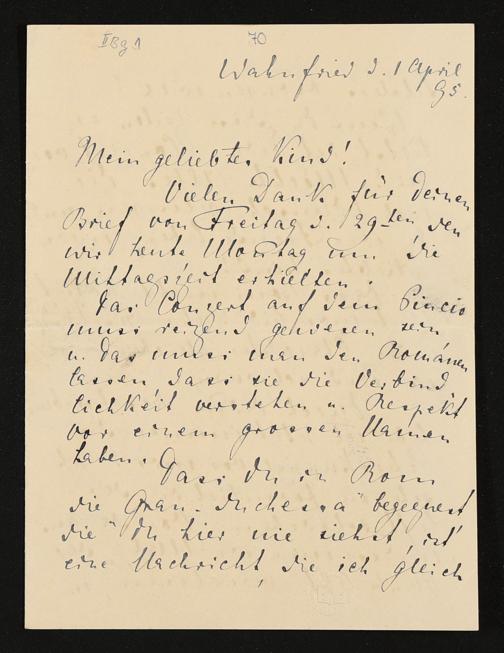 II B g 1
70
Wahnfried d. 1 April
95.
Mein geliebtes Kind!
Vielen Dank für deinen
Brief von Freitag d. 29ten den
wir heute Montag um die
Mittagszeit erhielten.
Das Conzert auf dem Pincio
muss reizend gewesen sein
u. das muss man den Románen
lassen dass sie die Verbind
lichkeit verstehen u. Respekt
vor einem grossen Namen
haben.
Dass du in Rom
die Gran-Duchessa begegnest
die du hier nie siehst, ist
eine Nachricht, die ich gleich